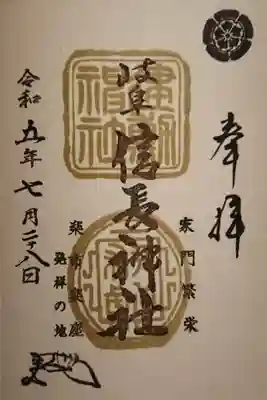 奉拝
家門繁栄
岐阜信長神社
楽市楽座
発祥の地
令和五年七月二十八日